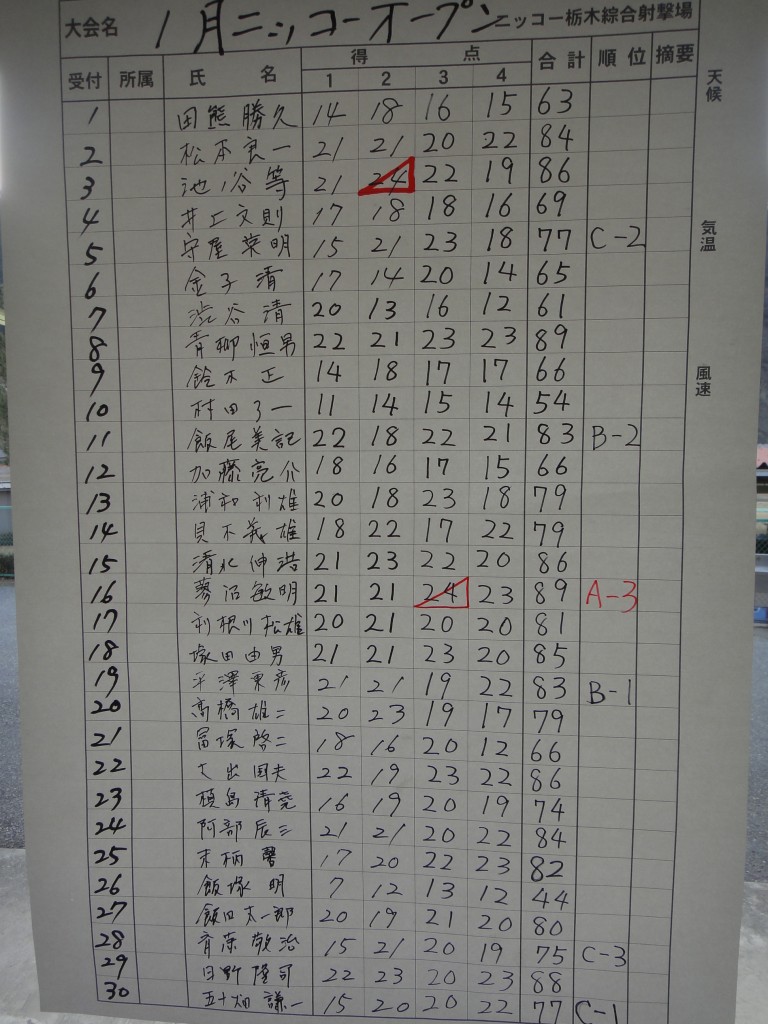 大会名 1月ニッコーオープン ニッコー栃木綜合射撃場
受付 所属 氏名 得点 合計 順位 摘要
1 2 3 4
天候
気温
風速
1 田熊勝久 14 18 16 15 63
2 松本良一 21 21 20 22 84
3 池ノ谷等 21 24 22 19 86
4 井上文則 17 18 18 16 69
5 守屋栄明 15 21 23 18 77 C-2
6 金子清 17 14 20 14 65
7 渋谷清 20 13 16 12 61
8 青柳恒男 22 21 23 23 89
9 鈴木正 14 18 17 17 66
10 村田了一 11 14 15 14 54
11 飯尾美記 22 18 22 21 83 B-2
12 加藤亮介 18 16 17 15 66
13 浦和利雄 20 18 23 18 79
14 義雄 18 22 17 22 79
15 清水伸浩 21 23 22 20 86
16 蓼沼敏明 21 21 24 23 89 A-3
17 利根川松雄 20 21 20 20 81
18 塚田由男 21 21 23 20 85
19 平澤東彦 21 21 19 22 83 B-1
20 高橋雄二 20 23 19 17 79
21 冨塚啓二 18 16 20 12 66
22 大出国夫 22 19 23 22 86
23 16 19 20 19 74
24 阿部辰三 21 21 20 22 84
25 末柄馨 17 20 22 23 82
26 飯塚明 7 12 13 12 44
27 飯田太一郎 20 19 21 20 80
28 斉藤敬治 15 21 20 19 75 C-3
29 日野隆司 22 23 20 23 88
30 五十畑謙一 15 20 20 22 77 C-1